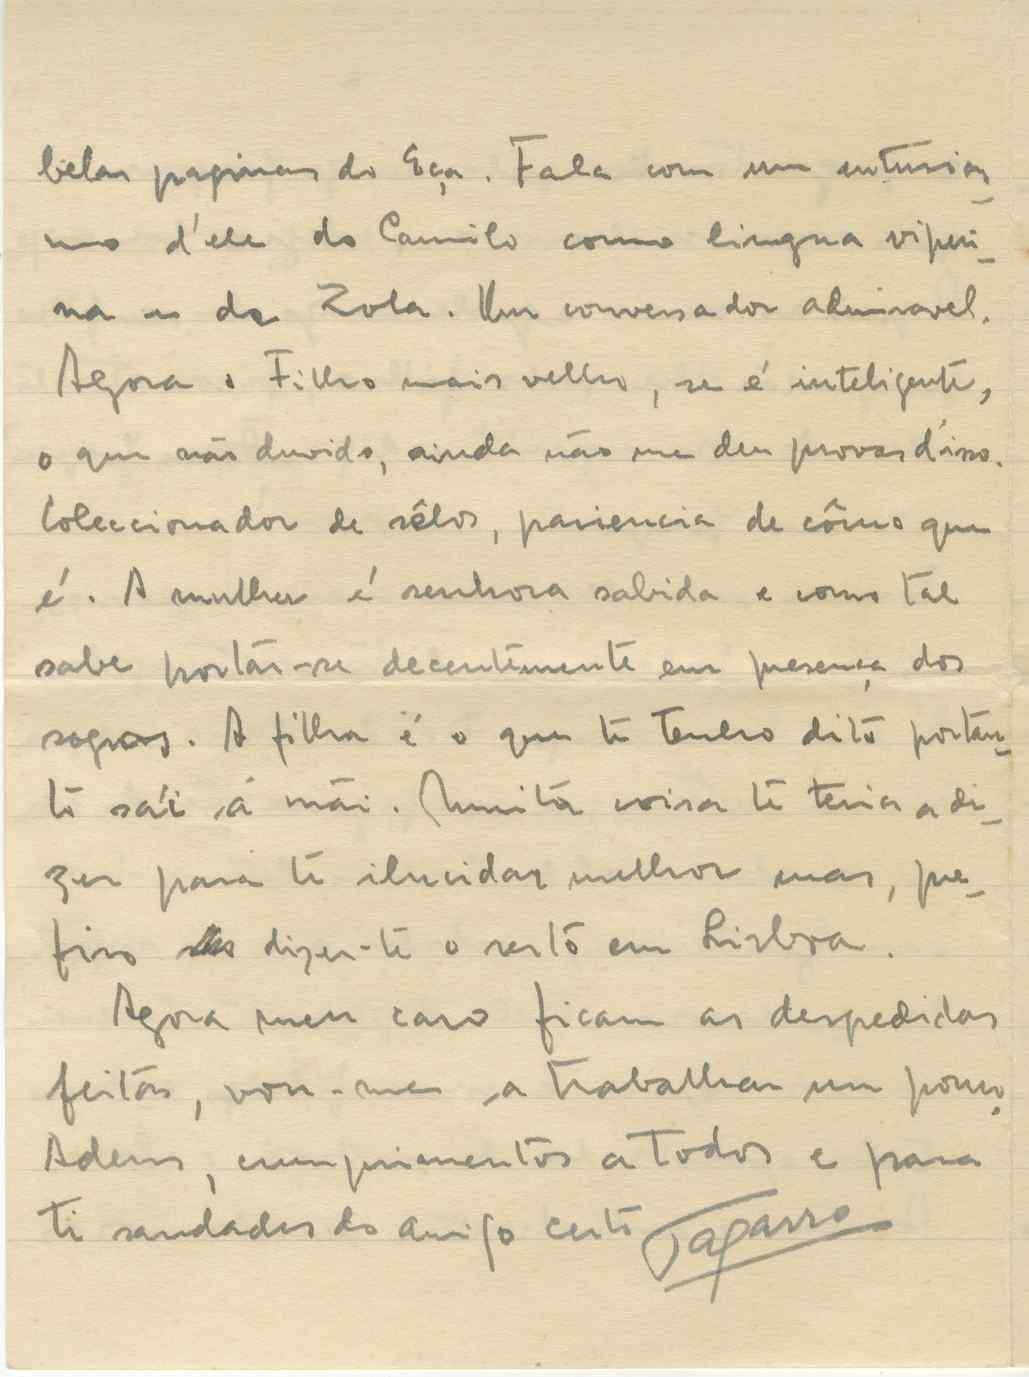 belas paginas do Eça. Fala com um entusias-
mo d'ele do Camilo como lingua viperi-
na e de Zola. Um conversador admiravel.
Agora o Filho mais velho, se é inteligente,
o que não duvido, ainda não me deu provas d'isso.
Coleccionador de sêlos, pasiencia de cômo que
é. A mulher é senhora sabida e como tal
sabe portár-se decentemente em presença dos
sogros. A filha é o que te tenho dito portan-
to sái á mãi. Muita coisa te teria a di-
zer para te ilucidar melhor mas, pre-
firo dizer-te o resto em Lisboa.
Agora meu caro ficam as despedidas
feitas, vou-me a trabalhar um pouco,
Adeus, cumprimentos a todos e para
ti saudades do amigo certo Tagarro